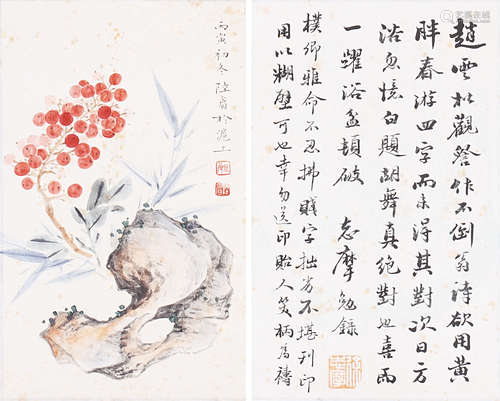 趙雲松觀詧作不倒翁詩欲用黃
胖春游四字而未得其對次日方
浴忽憶白題胡舞真絕對也喜而
一躍浴盆頓破 志摩勉錄
樸卿雅命不忍拂賤字拙劣不堪刊印
用以糊壁可也幸勿送印貽人笑柄為禱
丙寅初冬陸眉於滬上